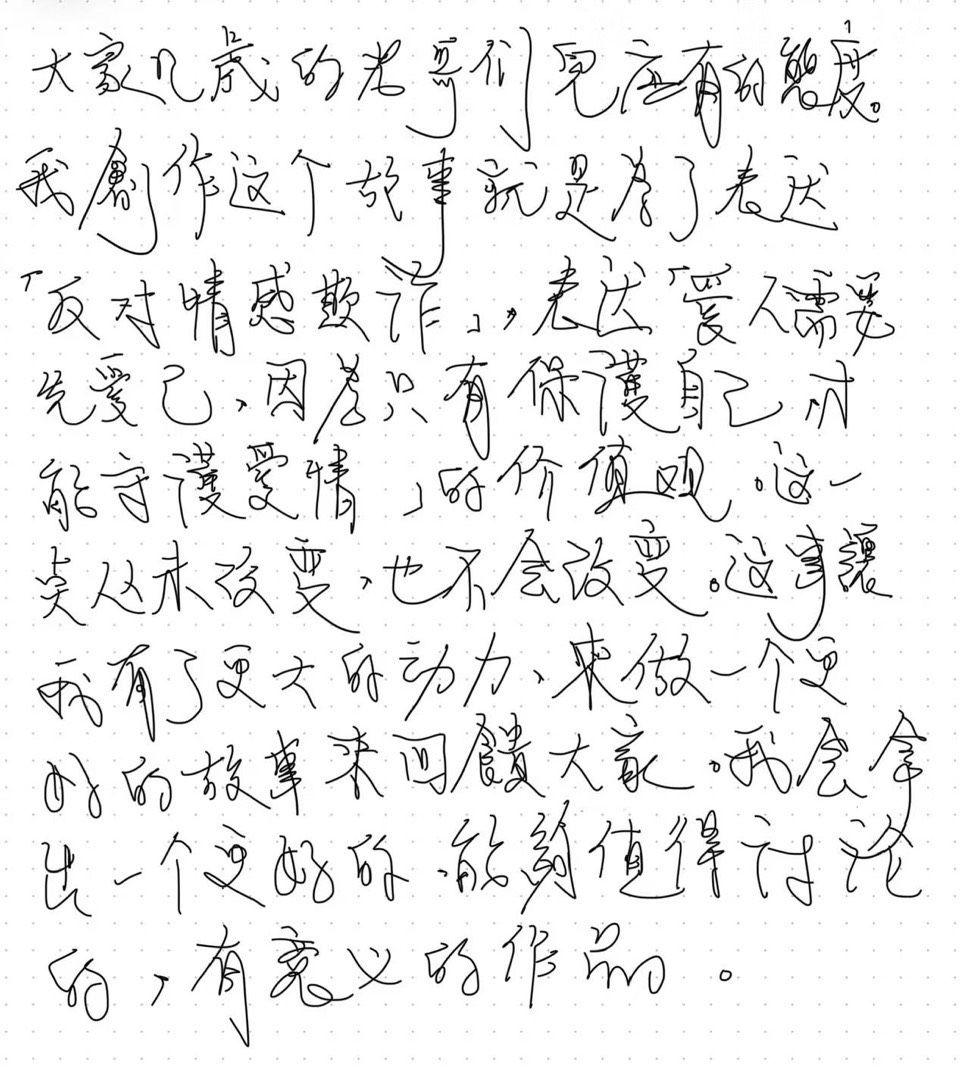 大家几歲的老哥们兒应有的態度。
我創作这个故事就是為了表达
「反对情感欺诈」，表达「爱人需要
先愛己、因為只有保護自己、才
能守護愛情」的价值观。这一
点从未改变，也不会改变。这事讓
我有了更大的动力、来做一个更
好的故事来回饋大家。我会拿
出一个更好的、能夠值得讨论
的，有意义的作品。